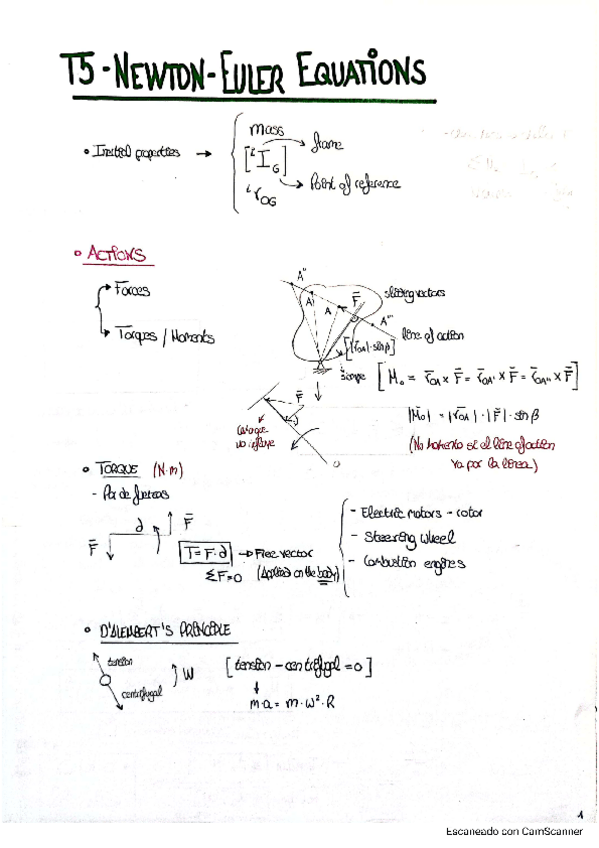 T5 - NEWTON - EULER EQUATIONS
• Inertial properties → mass
[ⁱI_G] frame
ⁱr_OG Point of reference
• ACTIONS
Forces
Torques / Moments
A'' A' A F̄ A'''
sliding vectors
line of action
[|r̄_OA| · sinβ]
[M̄o = r̄_OA x F̄ = r̄_OA' x F̄ = r̄_OA'' x F̄]
|M̄o| = |r̄_OA| · |F̄| · sin β
(No momento si el line of action
va por la línea)
F̄
no influye
O
• TORQUE (N·m)
- Par de fuerzas
d F̄
F̄
T = F · d → Free vector
ΣF = 0 (Applied on the body)
- Electric motors - rotor
- Steering wheel
- Combustion engines
• D'ALEMBERT'S PRINCIPLE
tension
centrifugal
W
[tension - centrifugal = 0]
m·a = m·w²·R
1
Escaneado con CamScanner